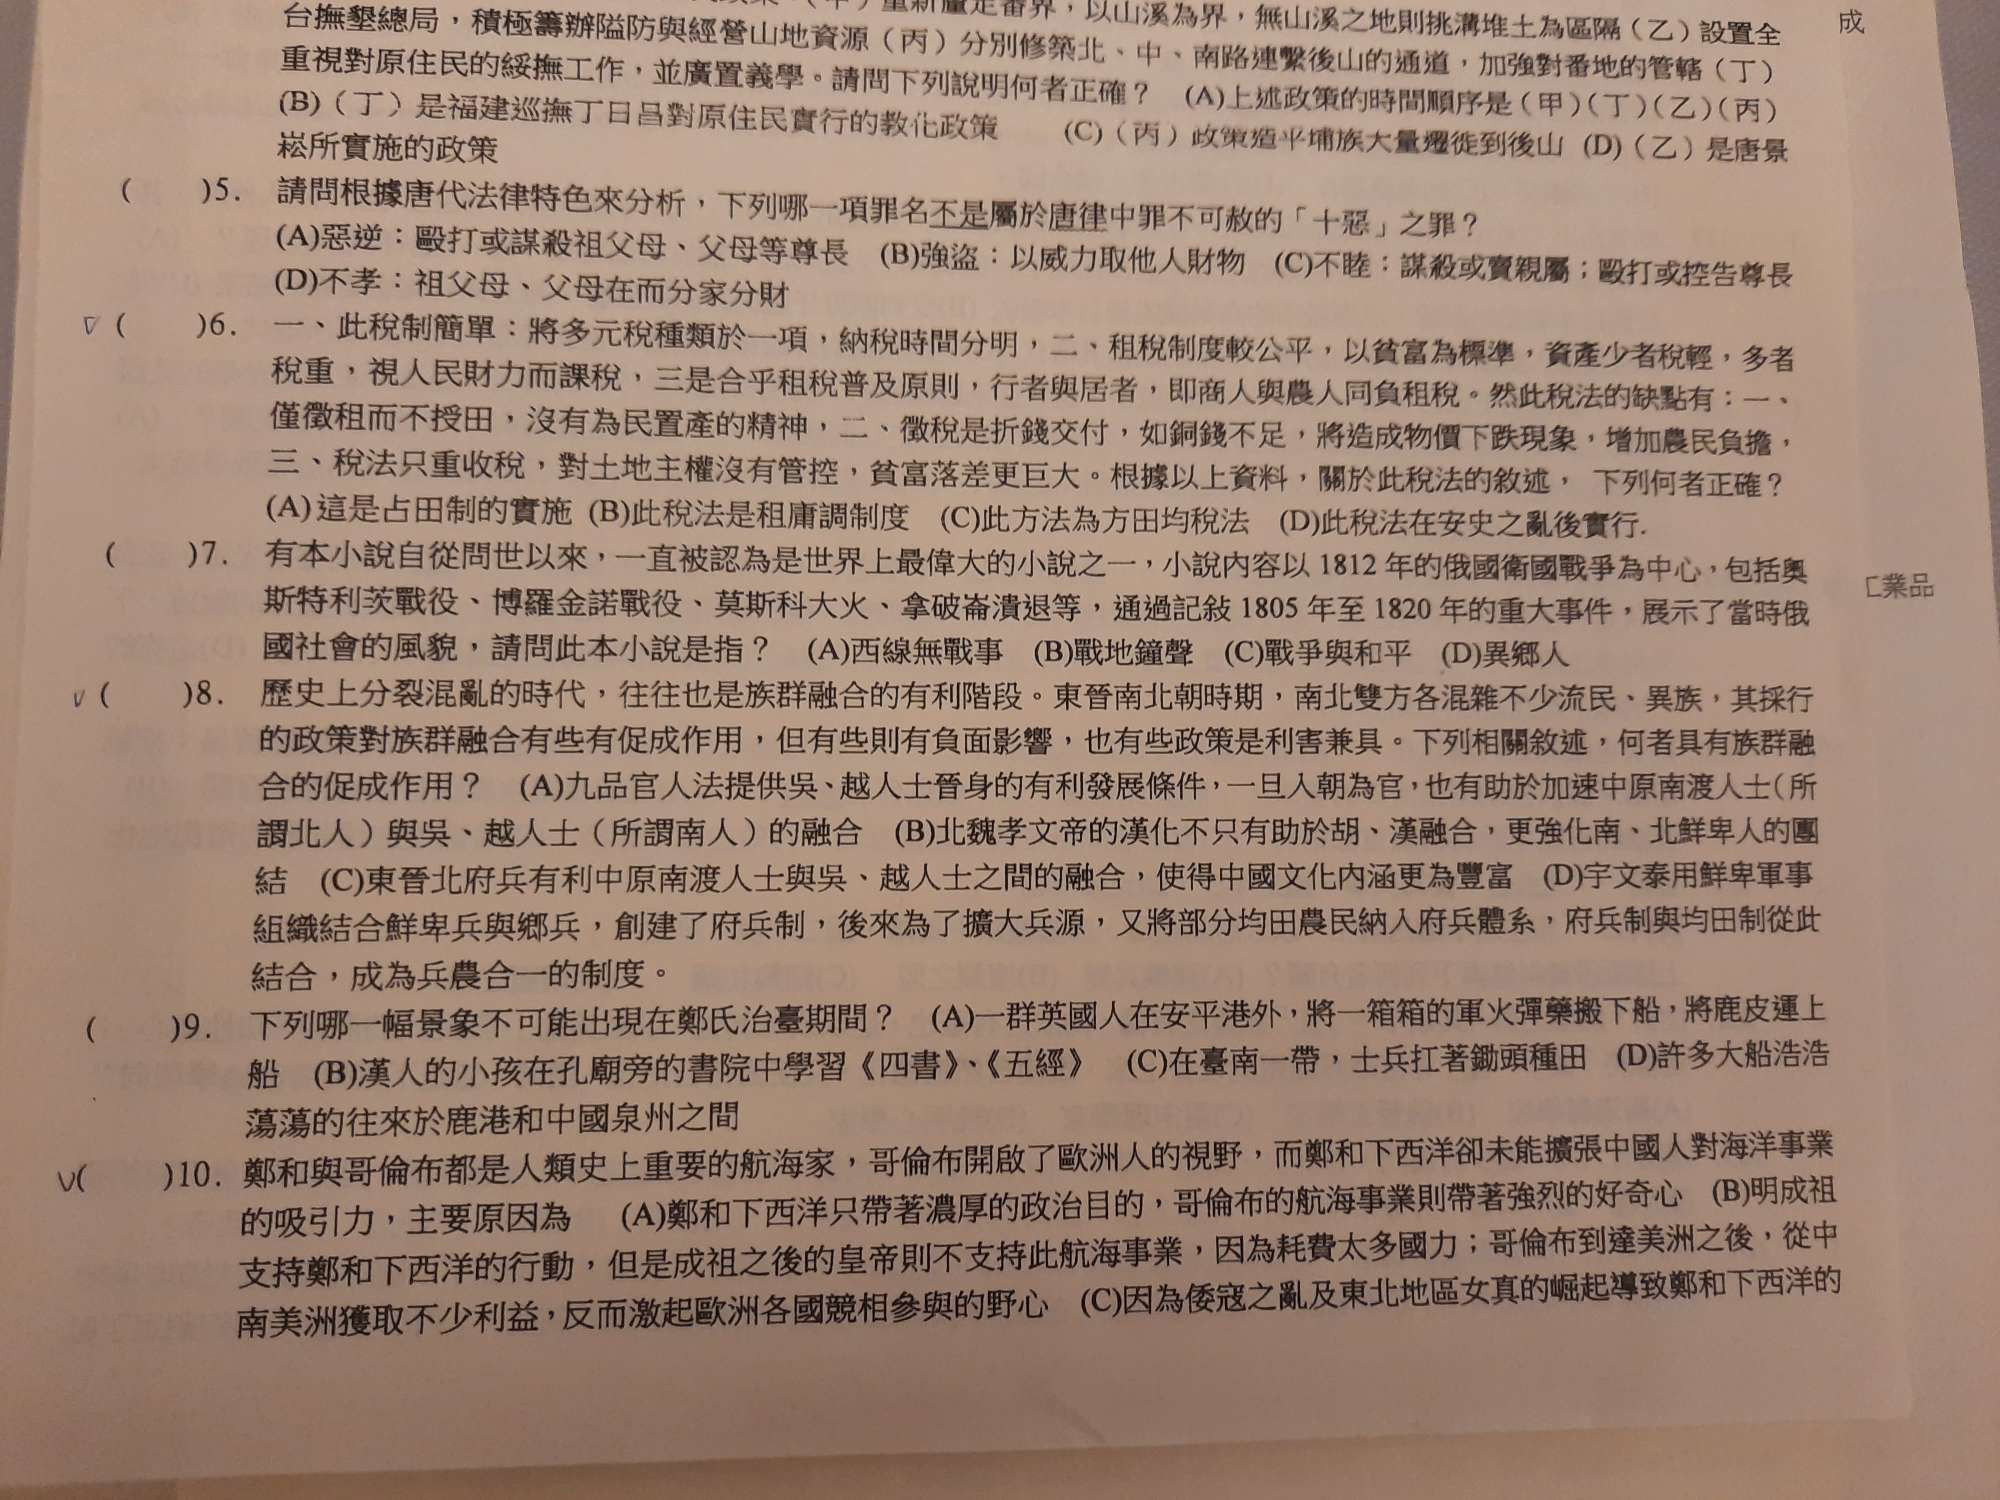 重新釐定番界，以山溪為界，無山溪之地則挑溝堆土為區隔（乙）設置全
台撫墾總局，積極籌辦隘防與經營山地資源（丙）分別修築北、中、南路連繫後山的通道，加強對番地的管轄（丁）
重視對原住民的綏撫工作，並廣置義學。請問下列說明何者正確？ (A)上述政策的時間順序是（甲）（丁）（乙）（丙）
(B)（丁）是福建巡撫丁日昌對原住民實行的教化政策 (C)（丙）政策造平埔族大量遷徙到後山 (D)（乙）是唐景
崧所實施的政策
( )5. 請問根據唐代法律特色來分析，下列哪一項罪名不是屬於唐律中罪不可赦的「十惡」之罪？
(A)惡逆：毆打或謀殺祖父母、父母等尊長 (B)強盜：以威力取他人財物 (C)不睦：謀殺或賣親屬；毆打或控告尊長
(D)不孝：祖父母、父母在而分家分財
( )6. 一、此稅制簡單：將多元稅種類於一項，納稅時間分明，二、租稅制度較公平，以貧富為標準，資產少者稅輕，多者
稅重，視人民財力而課稅，三是合乎租稅普及原則，行者與居者，即商人與農人同負租稅。然此稅法的缺點有：一、
僅徵租而不授田，沒有為民置產的精神，二、徵稅是折錢交付，如銅錢不足，將造成物價下跌現象，增加農民負擔，
三、稅法只重收稅，對土地主權沒有管控，貧富落差更巨大。根據以上資料，關於此稅法的敘述， 下列何者正確？
(A)這是占田制的實施 (B)此稅法是租庸調制度 (C)此方法為方田均稅法 (D)此稅法在安史之亂後實行.
( )7. 有本小說自從問世以來，一直被認為是世界上最偉大的小說之一，小說內容以 1812 年的俄國衛國戰爭為中心，包括奧
斯特利茨戰役、博羅金諾戰役、莫斯科大火、拿破崙潰退等，通過記敍 1805 年至 1820 年的重大事件，展示了當時俄
國社會的風貌，請問此本小說是指？ (A)西線無戰事 (B)戰地鐘聲 (C)戰爭與和平 (D)異鄉人
( )8. 歷史上分裂混亂的時代，往往也是族群融合的有利階段。東晉南北朝時期，南北雙方各混雜不少流民、異族，其採行
的政策對族群融合有些有促成作用，但有些則有負面影響，也有些政策是利害兼具。下列相關敘述，何者具有族群融
合的促成作用？ (A)九品官人法提供吳、越人士晉身的有利發展條件，一旦入朝為官，也有助於加速中原南渡人士（所
謂北人）與吳、越人士（所謂南人）的融合 (B)北魏孝文帝的漢化不只有助於胡、漢融合，更強化南、北鮮卑人的團
結 (C)東晉北府兵有利中原南渡人士與吳、越人士之間的融合，使得中國文化內涵更為豐富 (D)宇文泰用鮮卑軍事
組織結合鮮卑兵與鄉兵，創建了府兵制，後來為了擴大兵源，又將部分均田農民納入府兵體系，府兵制與均田制從此
結合，成為兵農合一的制度。
( )9. 下列哪一幅景象不可能出現在鄭氏治臺期間？ (A)一群英國人在安平港外，將一箱箱的軍火彈藥搬下船，將鹿皮運上
船 (B)漢人的小孩在孔廟旁的書院中學習《四書》、《五經》 (C)在臺南一帶，士兵扛著鋤頭種田 (D)許多大船浩浩
蕩蕩的往來於鹿港和中國泉州之間
( )10. 鄭和與哥倫布都是人類史上重要的航海家，哥倫布開啟了歐洲人的視野，而鄭和下西洋卻未能擴張中國人對海洋事業
的吸引力，主要原因為 (A)鄭和下西洋只帶著濃厚的政治目的，哥倫布的航海事業則帶著強烈的好奇心 (B)明成祖
支持鄭和下西洋的行動，但是成祖之後的皇帝則不支持此航海事業，因為耗費太多國力；哥倫布到達美洲之後，從中
南美洲獲取不少利益，反而激起歐洲各國競相參與的野心 (C)因為倭寇之亂及東北地區女真的崛起導致鄭和下西洋的
成
業品